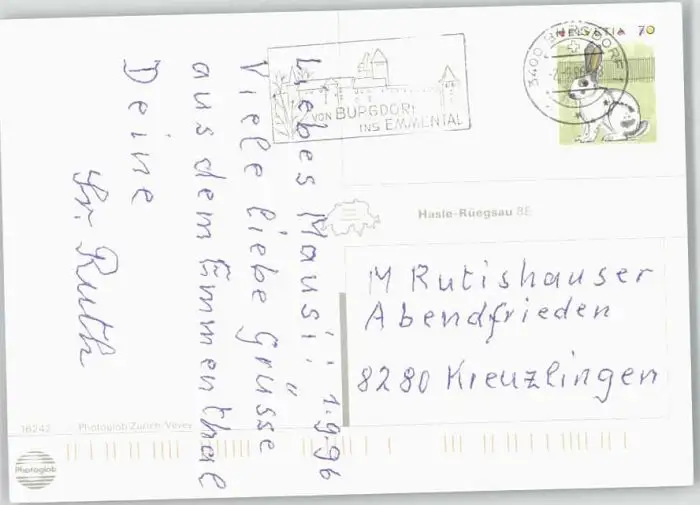 Liebes Mausi! 1.9.96
Viele liebe Grüsse
aus dem Emmenthal
Deine
Sr. Ruth
VON BURGDORF
INS EMMENTAL
3400 BURGDORF
HELVETIA 70
Hasle-Rüegsau BE
M Rutishauser
Abendfrieden
8280 Kreuzlingen
16242 Photoglob Zürich/Vevey
Photoglob